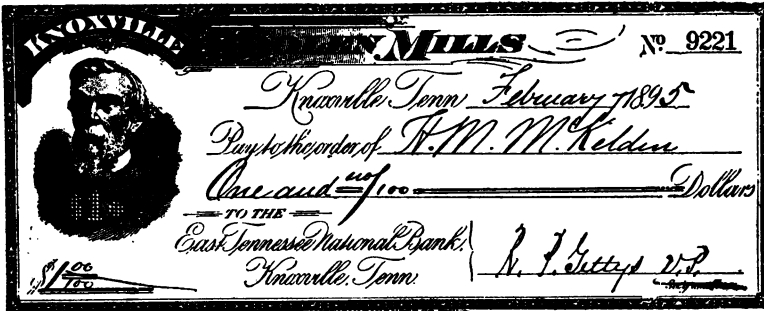 KNOXVILLE MILLS
Nº 9221
Knoxville, Tenn February 7 1895
Pay to the order of H. M. McKeldin
One and no/100 Dollars
TO THE
East Tennessee National Bank,
Knoxville, Tenn.
$1 00/100
N. P. Gettys V.P.